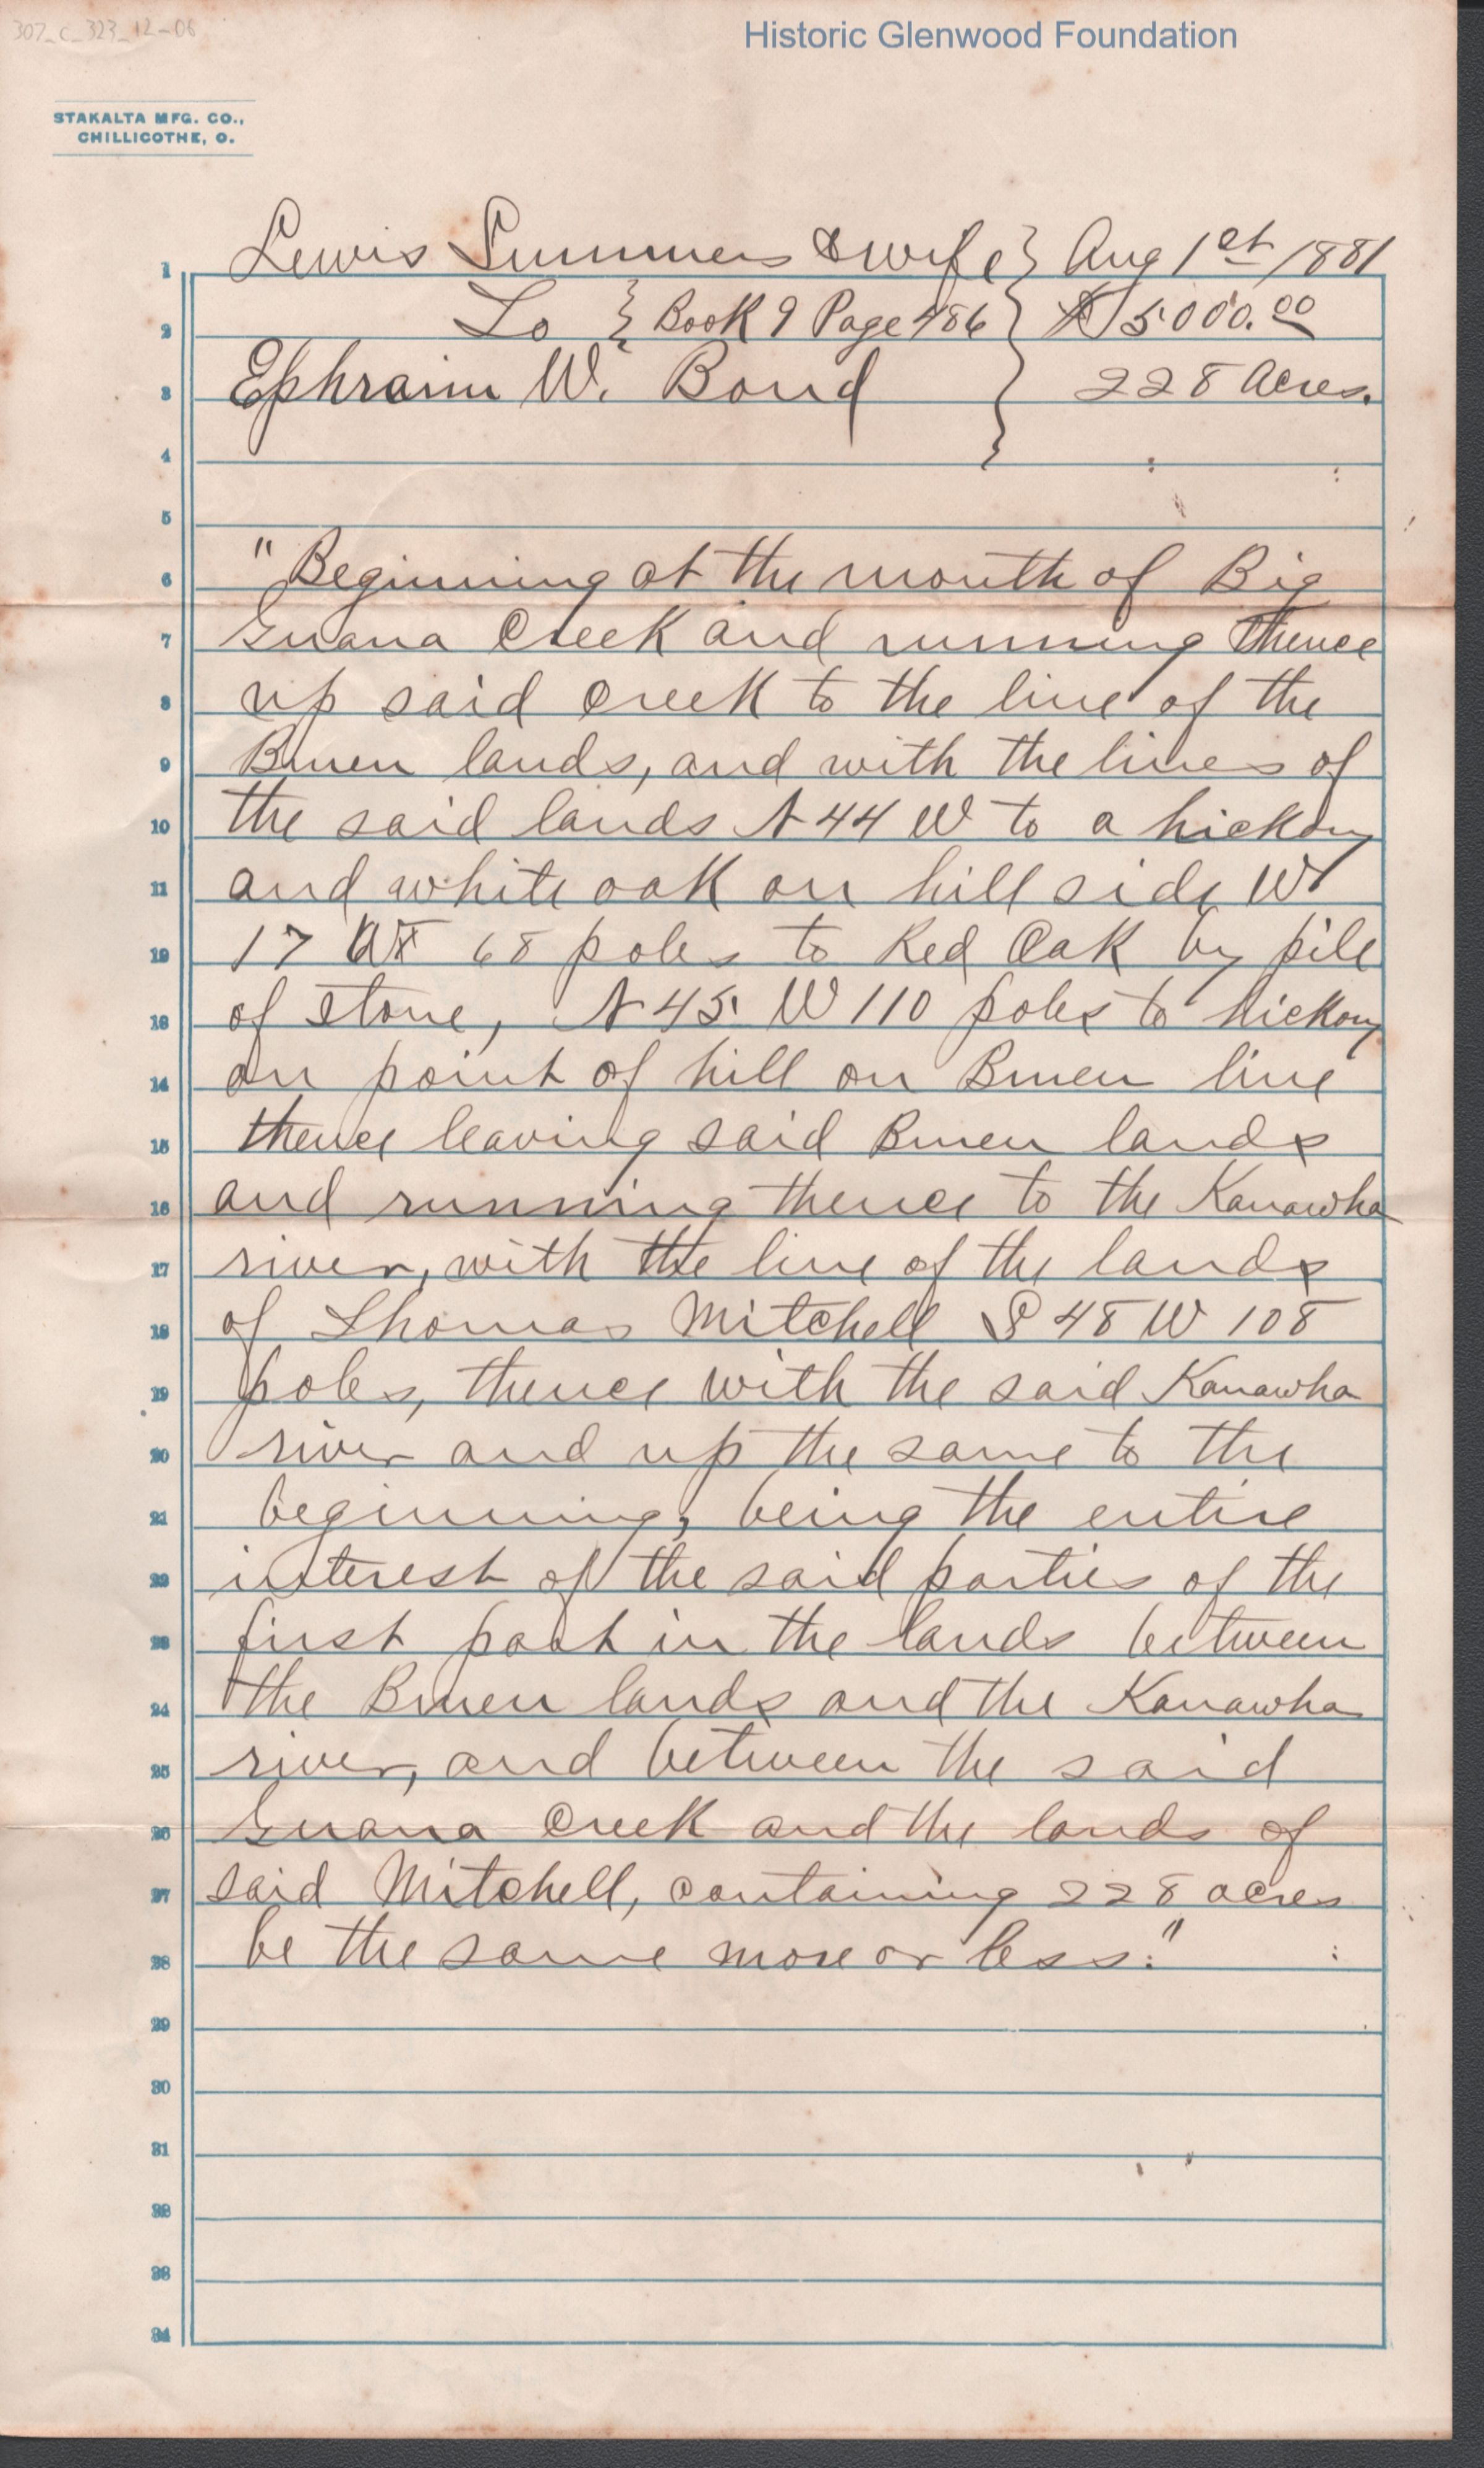 307_C_323_12-06
Historic Glenwood Foundation
STAKALTA MFG. CO.,
CHILLICOTHE, O.
1 Lewis Summers & wife } Aug 1st 1881
2 To } Book 9 Page 486 } $5000.00
3 Ephraim W. Bond } 228 Acres.
4
5
6 "Beginning at the mouth of Big
7 Guana Creek and running thence
8 up said creek to the line of the
9 Bruen lands, and with the lines of
10 the said lands N 44 W to a hickory
11 and white oak on hill side W
12 17 68 poles to Red Oak by pile
13 of stone, N 45 W 110 poles to hickory
14 on point of hill on Bruen line
15 thence leaving said Bruen lands
16 and running thence to the Kanawha
17 river, with the line of the lands
18 of Thomas Mitchell S 48 W 108
19 poles, thence with the said Kanawha
20 river and up the same to the
21 beginning, being the entire
22 interest of the said parties of the
23 first part in the lands between
24 the Bruen lands and the Kanawha
25 river, and between the said
26 Guana Creek and the lands of
27 said Mitchell, containing 228 acres
28 be the same more or less."
29
30
31
32
33
34